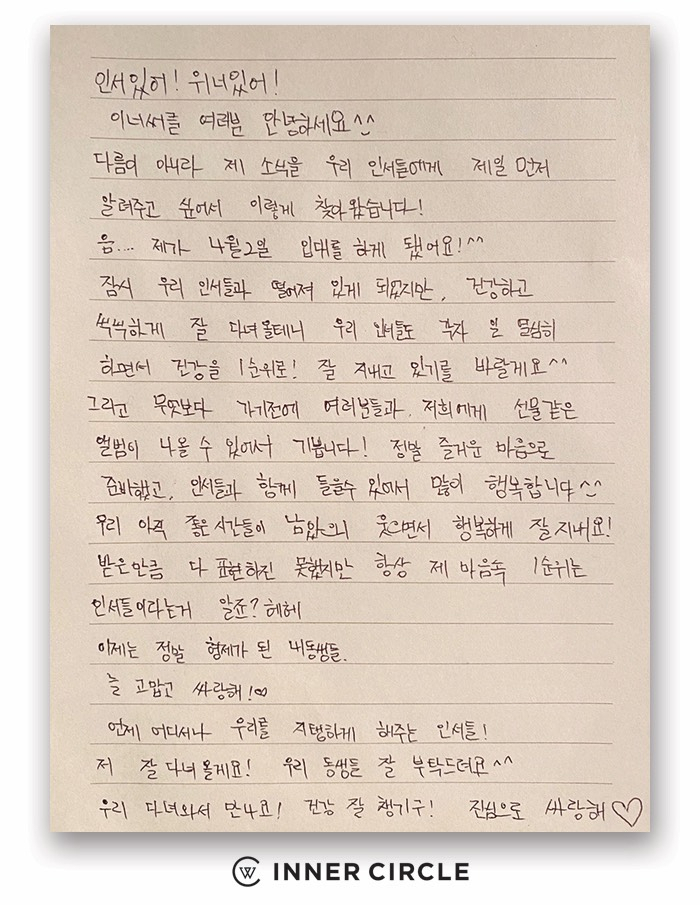 인서있어! 위너있어!
이너써클 여러분 안녕하세요^^
다름이 아니라 제 소식을 우리 인서들에게 제일 먼저
알려주고 싶어서 이렇게 찾아왔습니다!
음.... 제가 4월2일 입대를 하게 됐어요!^^
잠시 우리 인서들과 떨어져 있게 되었지만, 건강하고
씩씩하게 잘 다녀올테니 우리 인서들도 각자 일 열심히
하면서 건강을 1순위로! 잘 지내고 있기를 바랄게요^^
그리고 무엇보다 가기전에 여러분들과, 저희에게 선물같은
앨범이 나올 수 있어서 기쁩니다! 정말 즐거운 마음으로
준비했고, 인서들과 함께 들을수 있어서 많이 행복합니다^^
우리 아직 좋은 시간들이 남았으니 웃으면서 행복하게 잘지내요!
받은만큼 다 표현하진 못했지만 항상 제 마음속 1순위는
인서들이라는거 알죠? 헤헤
이제는 정말 형제가 된 내동생들.
늘 고맙고 싸랑해!∞
언제 어디서나 우리를 지탱하게 해주는 인서들!
저 잘 다녀올게요! 우리 동생들 잘 부탁드려요^^
우리 다녀와서 만나요! 건강 잘 챙기구! 진심으로 싸랑해♡
INNER CIRCLE